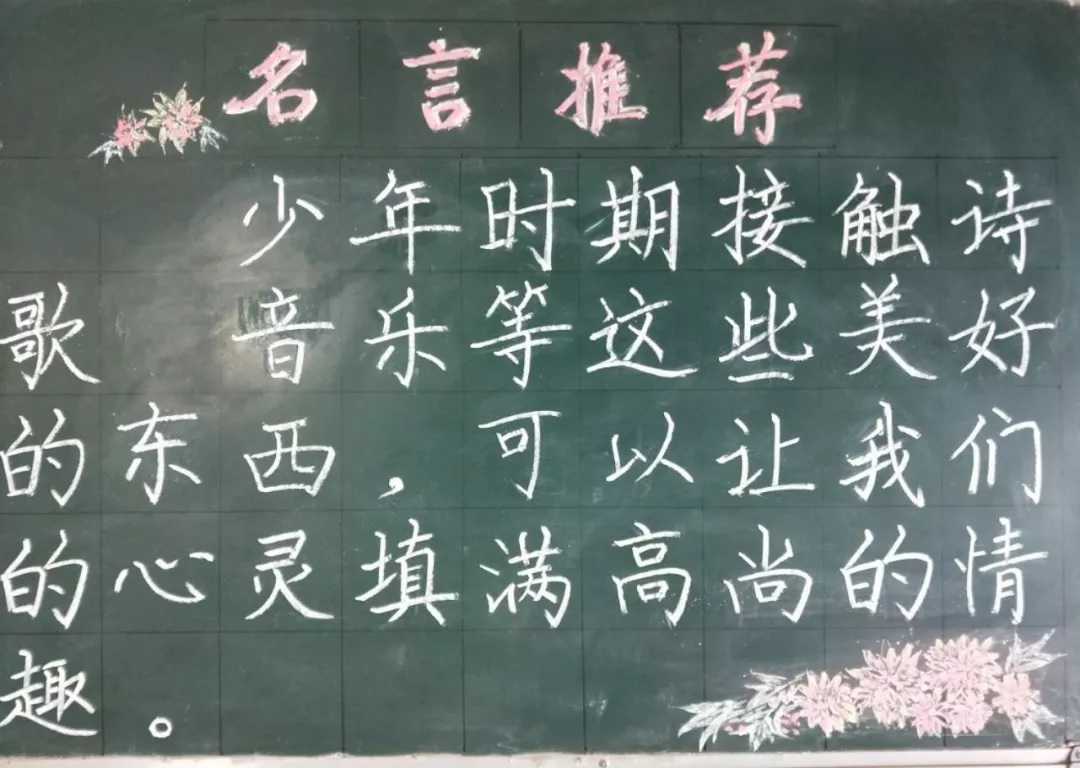 名言推荐
少年时期接触诗
歌 音乐等这些美好
的东西，可以让我们
的心灵填满高尚的情
趣。